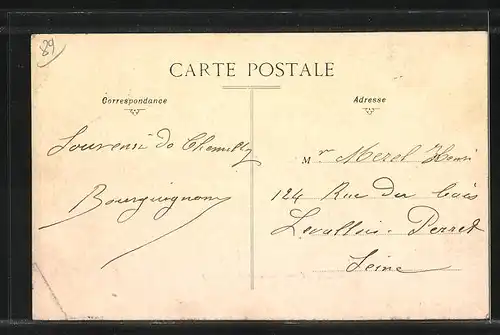 89
CARTE POSTALE
Correspondance
Adresse
Souvenir de Chemilly
Bourguignon
Mr Merel Henri
124 Rue du Bois
Levallois-Perret
Seine